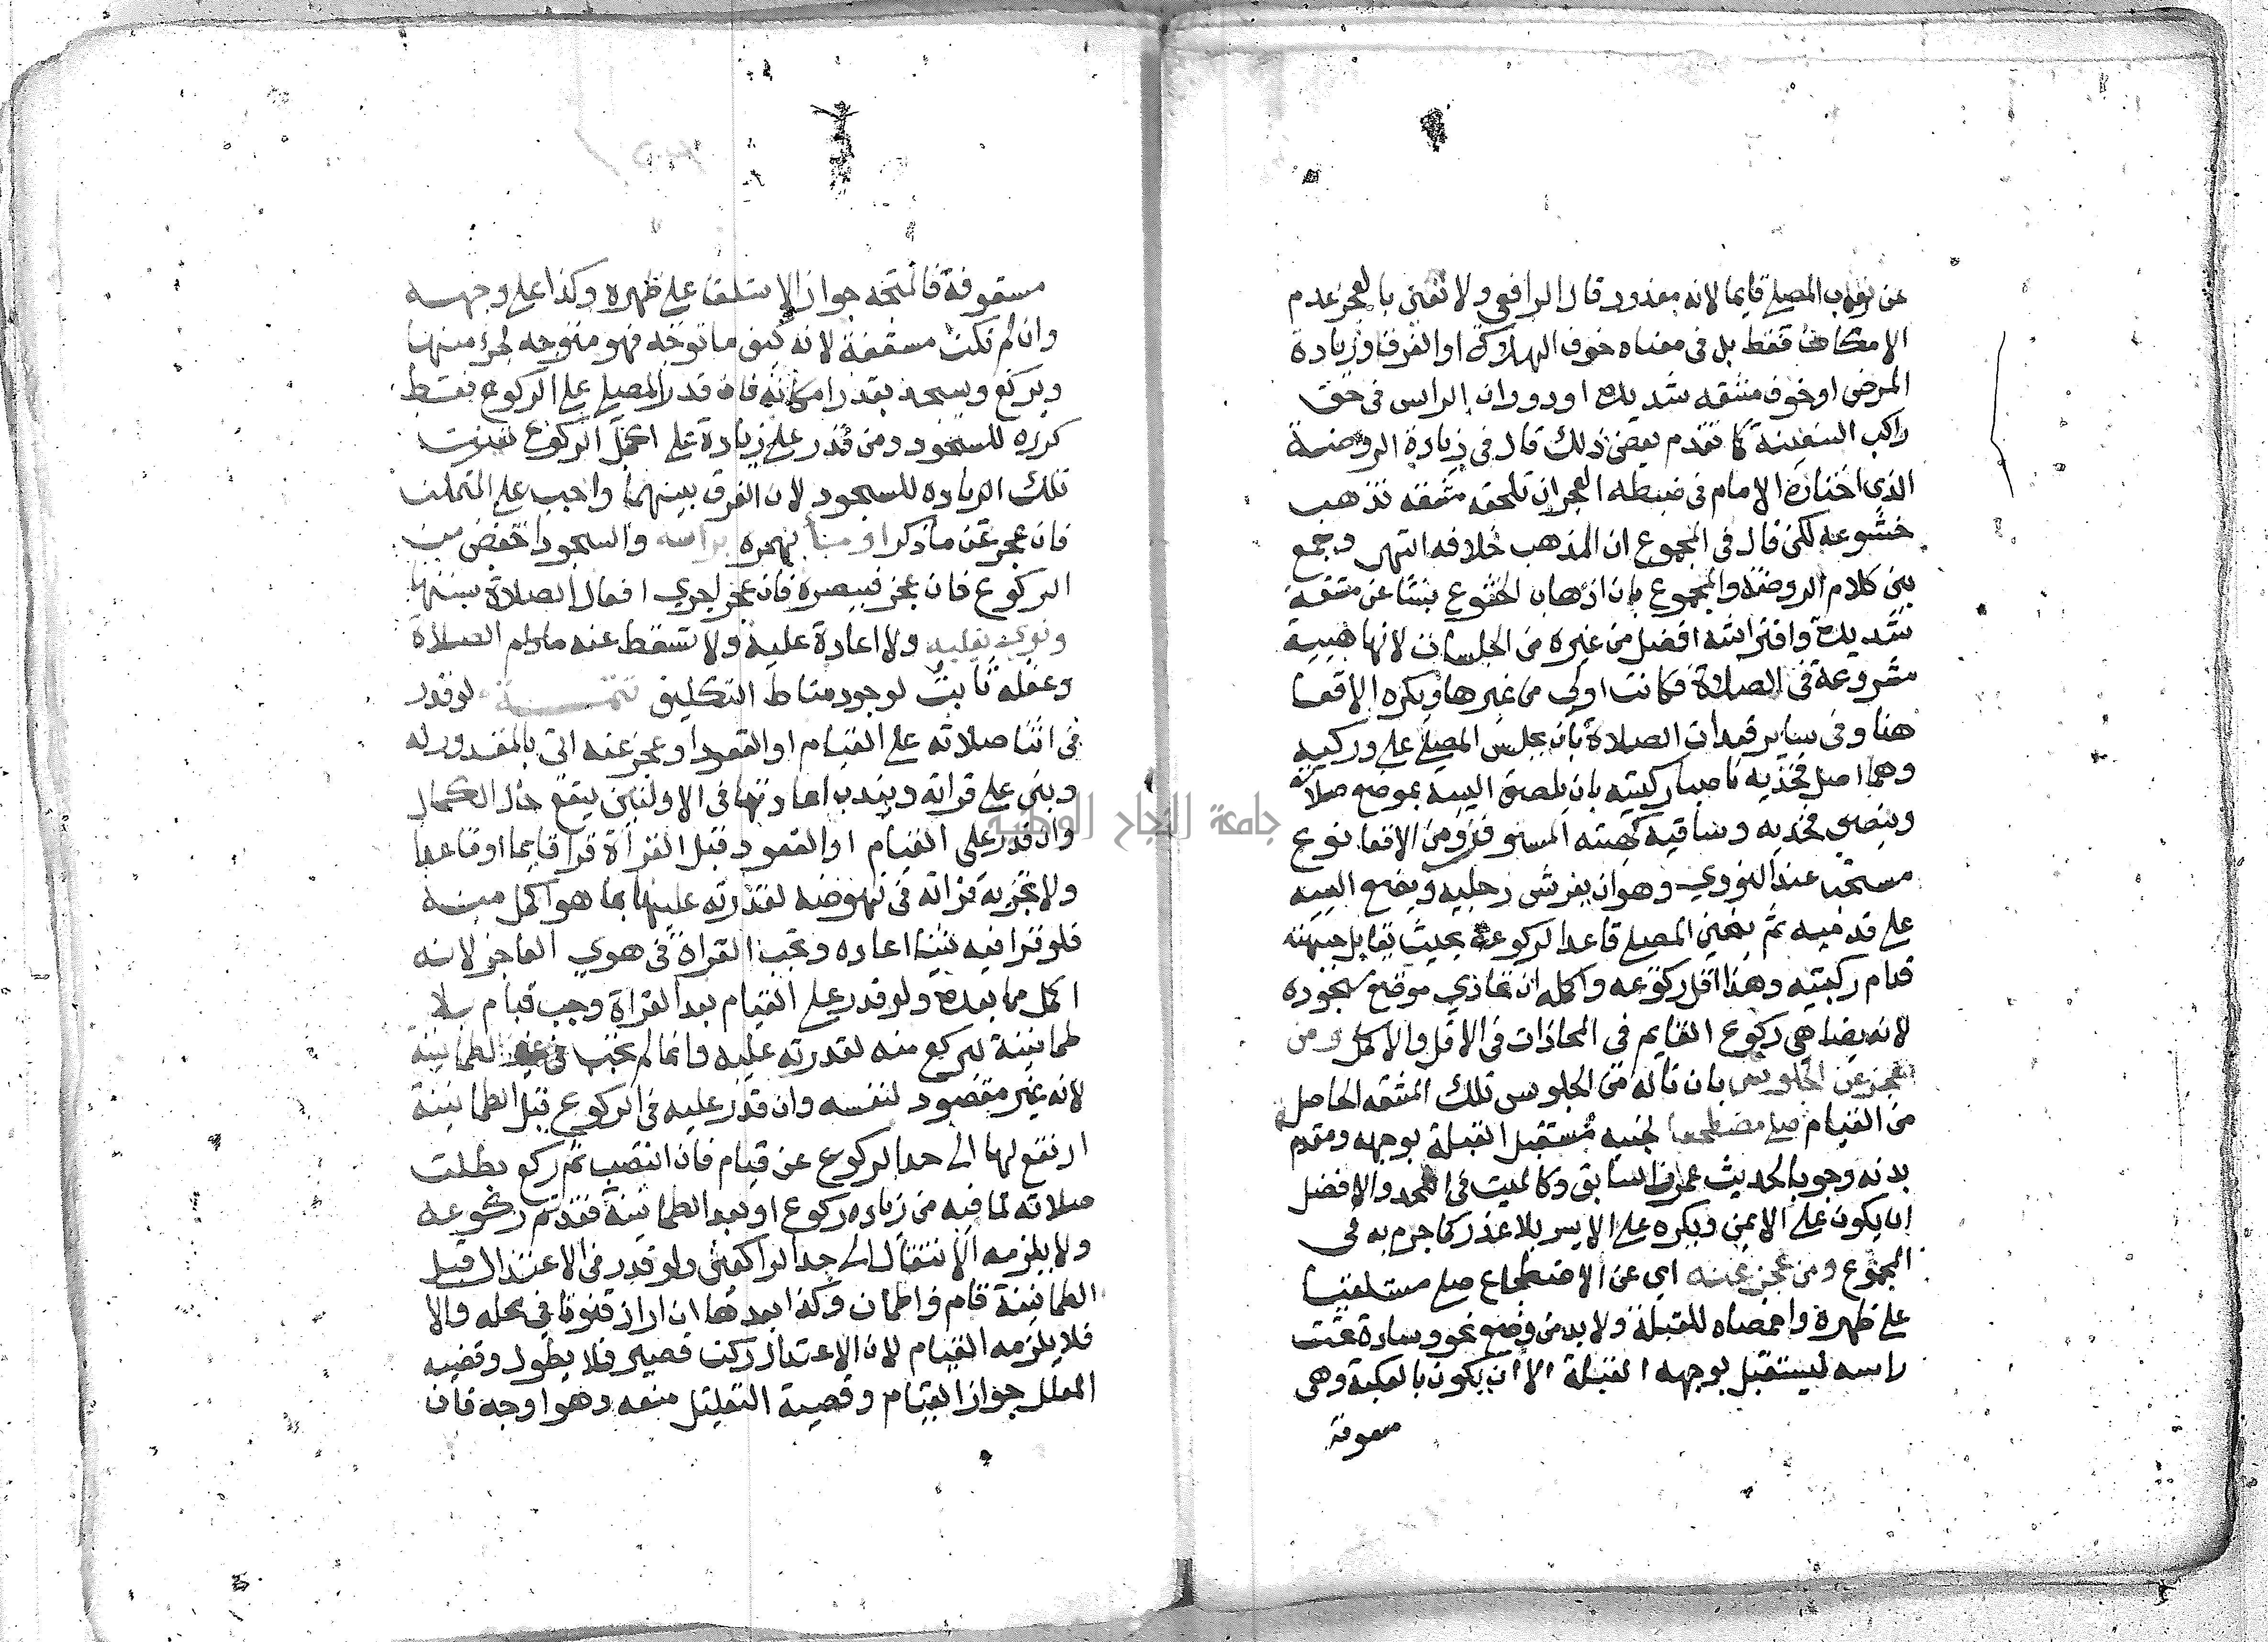 عن ثواب المصلي قايما لانه معذور قال الرافعي ولا نعني بالعجز عدم
الامكان فقط بل في معناه خوف الهلاك او الغرق وزيادة
المرض او خوف مشقه شديده او دوران الراس في حق
راكب السفينة كما تقدم بعض ذلك قال في زيادة الروضة
الذي اختاره الامام في ضبطه العجز ان تلحقه مشقه تذهب
خشوعه لكن قال في المجموع ان المذهب خلافه انتهى وجمع
بين كلام الروضة والمجموع بان اذهاب الخشوع ينشا عن مشقة
شديدة وافتراشه افضل من غيره من الجلسات لانها هيية
مشروعة في الصلاة فكانت اولى من غيرها ويكره الاقعا
هنا وفي ساير قعدات الصلاة بان يجلس المصلي على وركيه
وهما اصل فخذيه ناصبا ركبتيه بان يلصق الييه بموضع صلاته
وينصب فخذيه وساقيه كهيته المستوفز ومن الاقعا نوع
مستحب عند النووي وهو ان يفرش رجليه ويضع الييه
على قدميه ثم ينحني المصلي قاعدا لركوعه بحيث تقابل جبهته
قدام ركبتيه وهذا اقل ركوعه واكمله ان تحاذي موضع سجوده
لانه يضاهي ركوع القايم في المحاذات في الاقل والاكمل ومن
عجز عن الجلوس بان ناله من الجلوس تلك المشقه الحاصلة
من القيام صلى مضطجعا لجنبه مستقبل القبلة بوجهه ومقدم
بدنه وجوبا لحديث عمران السابق وكالميت في اللحد والافضل
ان يكون على الايمن ويكره على الايسر بلا عذر كما جزم به في
المجموع ومن عجز عنه اي عن الاضطجاع صلى مستلقيا
على ظهره واخمصاه للقبلة ولا بد من وضع نحو وسادة تحت
راسه ليستقبل بوجهه القبلة الا ان يكون بالكعبة وهي
مسقوفة
مسقوفة فالمتجه جواز الاستلقا على ظهره وكذا على وجهه
وان لم تكن مسقفة لانه كيف ما توجه فهو متوجه لجزء منها
ويركع ويسجد بقدر امكانه فان قدر المصلي على الركوع فقط
كرره للسجود ومن قدر على زيادة على اكمل الركوع تعينت
تلك الزياده للسجود لان الفرق بينهما واجب على المتمكن
فان عجز عن ما ذكر اومأ بهمزه براسه والسجود اخفض من
الركوع فان عجز فببصره فان عجز اجرى افعال الصلاة بسننها
بقلبه ولا اعادة عليه ولا تسقط عنه مادام الصلاة
وعقله ثابت لوجود مناط التكليف تتمة لو قدر
في اثنا صلاته على القيام او القعود او عجز عنه اتى بالمقدور له
وبنى على قراته ويندب اعادتها في الاولتين ليقع حال الكمال
وان قدر على القيام او القعود قبل القراة قرا قايما او قاعدا
ولا تجزيه قراته في نهوضه لقدرته عليها بما هو اكمل منه
فلو قرا فيه شيا اعاده وتجب القراة في هوي العاجز لانه
اكمل مما بعده ولو قدر على القيام بعد القراة وجب قيام بلا
طمانينة ليركع منه لقدرته عليه وانما لم تجب الطمانينة
لانه غير مقصود لنفسه وان قدر عليه في الركوع قبل الطمانينة
ارتفع لها الى حد الركوع عن قيام فان انتصب ثم ركع بطلت
صلاته لما فيه من زياده ركوع او بعد الطمانينة فقد تم ركوعه
ولا يلزمه الانتقال الى حد الراكعين ولو قدر في الاعتدال قبل
الطمانينة قام واطمان وكذا بعدها ان اراد قنوتا في محله والا
فلا يلزمه القيام لان الاعتدال ركن قصير فلا يطول وقضية
المعلل جواز القيام وقضية التعليل منعه وهو اوجه فان
جامعة النجاح الوطنية